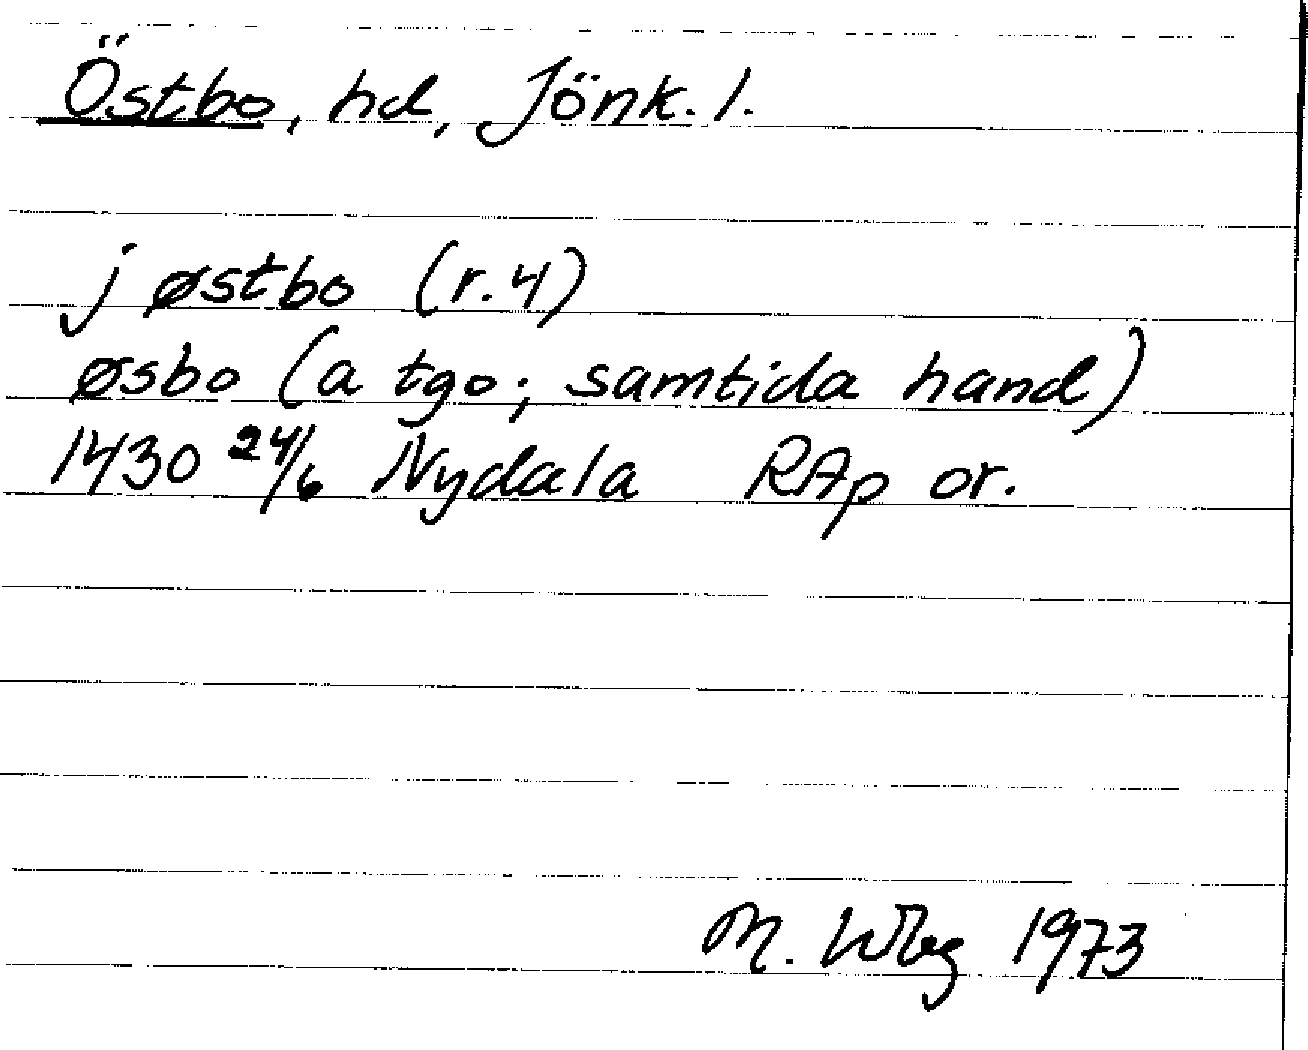 Östbo, hd, Jönk. l.
j østbo (r. 4)
øsbo (a tgo; samtida hand)
1430 24/6 Nydala RAp or.
M. Wbg 1973